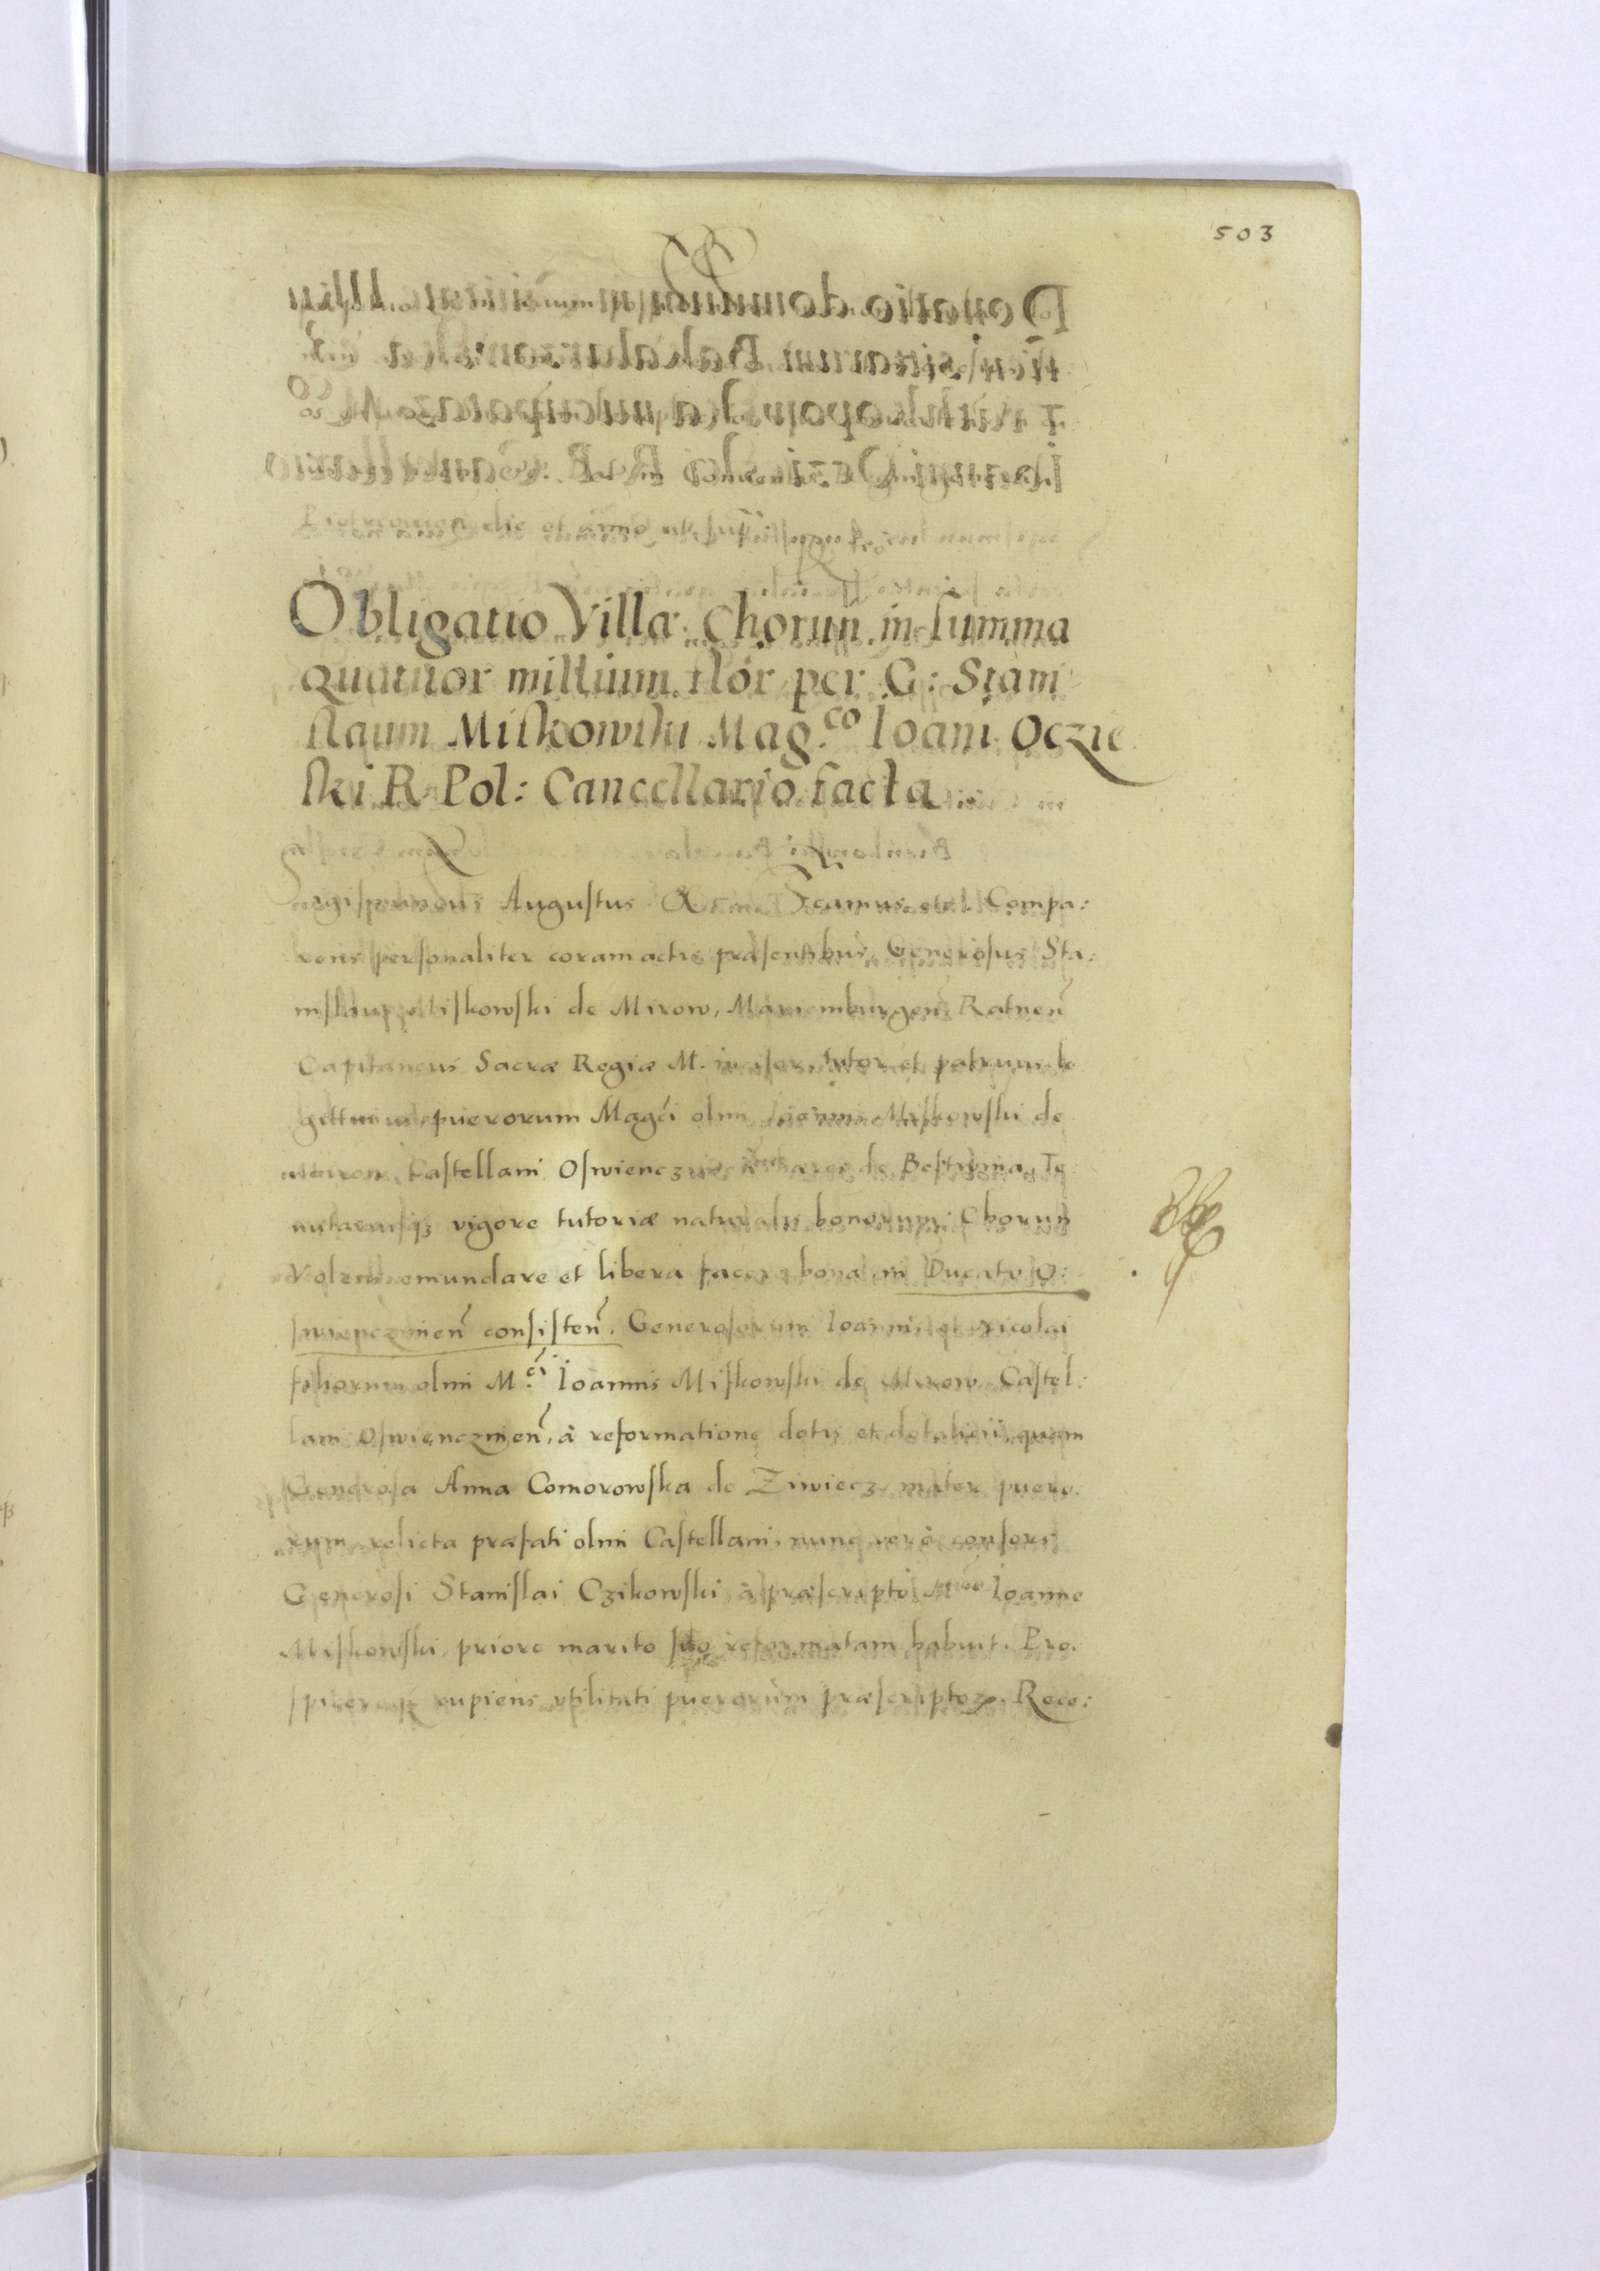 503
Datum in Conventu
Piotrcovien die et anno ut supra
Obligatio Villæ Chorun in summa
quatuor millium flor per G: Stani
slaum Miskowski Mag.co Ioani Oczie
ski R. Pol: Cancellario facta.
Sigismundus Augustus &c. Significamus etc. Compa:
rens personaliter coram actis præsentibus, Generosus Sta:
nislaus Miskowski de Mirow, Mariemburgen Ratnen
Capitaneus Sacræ Regiæ M. incisor, tutor et patruus le
gittimus puerorum Magci olim Ioannis Miskowski de
Mirow, Castellani Oswienczimen de Bestwina, Te
nutariusq3 vigore tutoriæ naturalis bonorum Chorun
Volens emundare et libera facere bona in Ducatu O:
swienczimen consisten. Generosorum Ioannis et Nicolai
filiorum olim M.ci Ioannis Miskowski de Mirow Castel:
lani Oswienczimen, à reformatione dotis et dotalicii, quam
Generosa Anna Comorowska de Ziwiecz mater puero.
rum, relicta præfati olim Castellani, nunc verò consors
Generosi Stanislai Czikowski, à præscripto Mco Ioanne
Miskowski, priore marito suo reformatam habuit. Pro.
spicereq3 cupiens utilitati puerorum præscriptor. Rece: